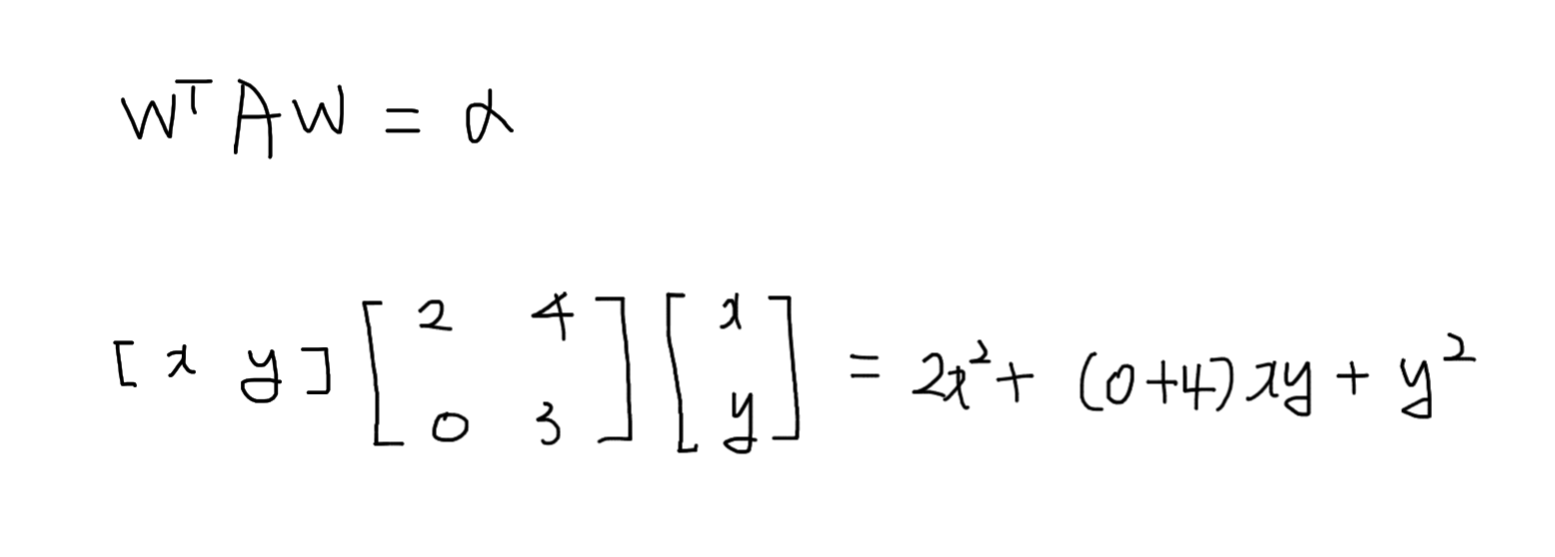 Wᵀ A W = α
[ x y ] [ 2 4 ; 0 3 ] [ x ; y ] = 2x² + (0+4)xy + y²